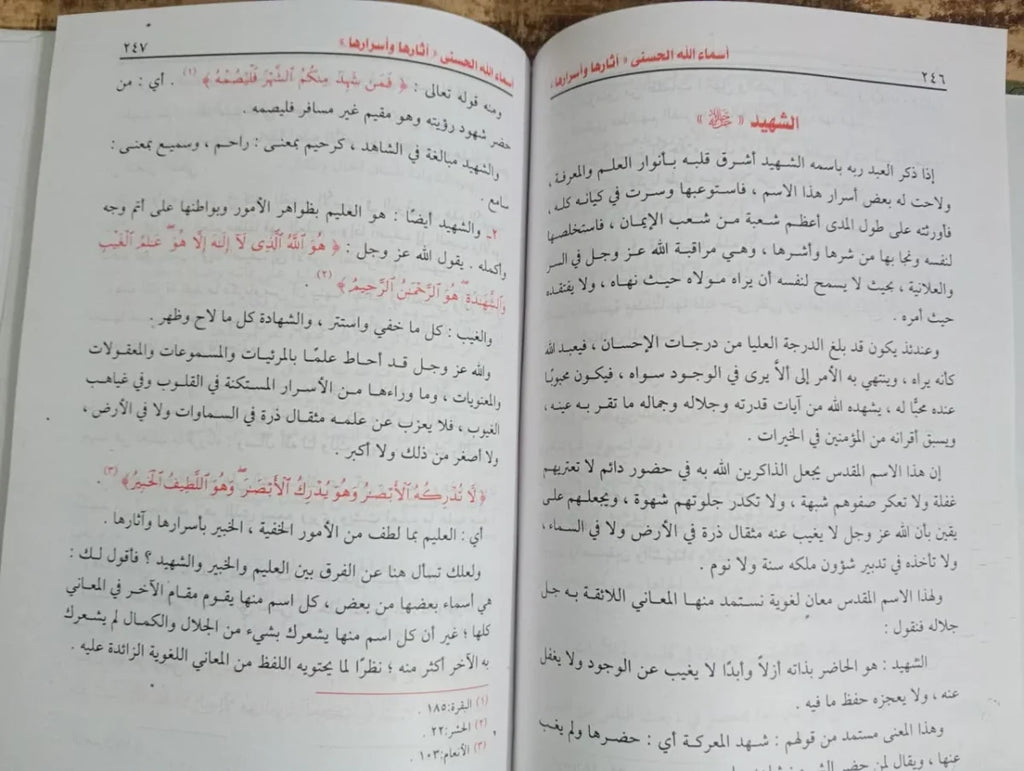 أسماء الله الحسنى « آثارها وأسرارها »
٢٤٦
الشهيد « ﷻ »
إذا ذكر العبد ربه باسمه الشهيد أشرق قلبه بأنوار العلم والمعرفة ،
ولاحت له بعض أسرار هذا الاسم ، فاستوعبها وسرت في كيانه كله ،
فأورثته على طول المدى أعظم شعبة من شعب الإيمان ، فاستخلصها
لنفسه ونجا بها من شرها وأشرها ، وهي مراقبة الله عز وجل في السر
والعلانية ، بحيث لا يسمح لنفسه أن يراه مولاه حيث نهاه ، ولا يفتقده
حيث أمره .
وعندئذ يكون قد بلغ الدرجة العليا من درجات الإحسان ، فيعبد الله
كأنه يراه ، وينتهي به الأمر إلى ألاَّ يرى في الوجود سواه ، فيكون محبوبًا
عنده محبًّا له ، يشهده الله من آيات قدرته وجلاله وجماله ما تقر به عينه ،
ويسبق أقرانه من المؤمنين في الخيرات .
إن هذا الاسم المقدس يجعل الذاكرين الله به في حضور دائم لا تعتريهم
غفلة ولا تعكر صفوهم شبهة ، ولا تكدر جلوتهم شهوة ، ويجعلهم على
يقين بأن الله عز وجل لا يغيب عنه مثقال ذرة في الأرض ولا في السماء ،
ولا تأخذه في تدبير شؤون ملكه سنة ولا نوم .
ولهذا الاسم المقدس معان لغوية نستمد منها المعاني اللائقة به جل
جلاله فنقول :
الشهيد : هو الحاضر بذاته أزلاً وأبدًا لا يغيب عن الوجود ولا يغفل
عنه ، ولا يعجزه حفظ ما فيه .
وهذا المعنى مستمد من قولهم : شهد المعركة أي : حضرها ولم يغب
عنها ، ويقال لمن حضر
أسماء الله الحسنى « آثارها وأسرارها »
٢٤٧
ومنه قوله تعالى : ﴿ فَمَن شَهِدَ مِنكُمُ ٱلشَّهْرَ فَلْيَصُمْهُ ﴾ (١) . أي : من
حضر شهود رؤيته وهو مقيم غير مسافر فليصمه .
والشهيد مبالغة في الشاهد ، كرحيم بمعنى : راحم ، وسميع بمعنى :
سامع .
٢ـ والشهيد أيضًا : هو العليم بظواهر الأمور وبواطنها على أتم وجه
وأكمله . يقول الله عز وجل : ﴿ هُوَ ٱللَّهُ ٱلَّذِى لَآ إِلَـٰهَ إِلَّا هُوَ ۖ عَـٰلِمُ ٱلْغَيْبِ
وَٱلشَّهَـٰدَةِ ۖ هُوَ ٱلرَّحْمَـٰنُ ٱلرَّحِيمُ ﴾ (٢) .
والغيب : كل ما خفي واستتر ، والشهادة كل ما لاح وظهر .
والله عز وجل قد أحاط علمًا بالمرئيات والمسموعات والمعقولات
والمعنويات ، وما وراءها من الأسرار المستكنة في القلوب وفي غياهب
الغيوب ، فلا يعزب عن علمه مثقال ذرة في السماوات ولا في الأرض ،
ولا أصغر من ذلك ولا أكبر .
﴿لَّا تُدْرِكُهُ ٱلْأَبْصَـٰرُ وَهُوَ يُدْرِكُ ٱلْأَبْصَـٰرَ ۖ وَهُوَ ٱللَّطِيفُ ٱلْخَبِيرُ﴾ (٣) .
أي : العليم بما لطف من الأمور الخفية ، الخبير بأسرارها وآثارها .
ولعلك تسأل هنا عن الفرق بين العليم والخبير والشهيد ؟ فأقول لك :
هي أسماء بعضها من بعض ، كل اسم منها يقوم مقام الآخر في المعاني
كلها ؛ غير أن كل اسم منها يشعرك بشيء من الجلال والكمال لم يشعرك
به الآخر أكثر منه ؛ نظرًا لما يحتويه اللفظ من المعاني اللغوية الزائدة عليه .
(١) البقرة:١٨٥ .
(٢) الحشر:٢٢ .
(٣) الأنعام:١٠٣ .